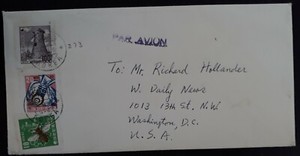 PAR AVION
To: Mr. Richard Hollander
W. Daily News
1013 13th St. N.W
Washington, D.C.
U.S.A.